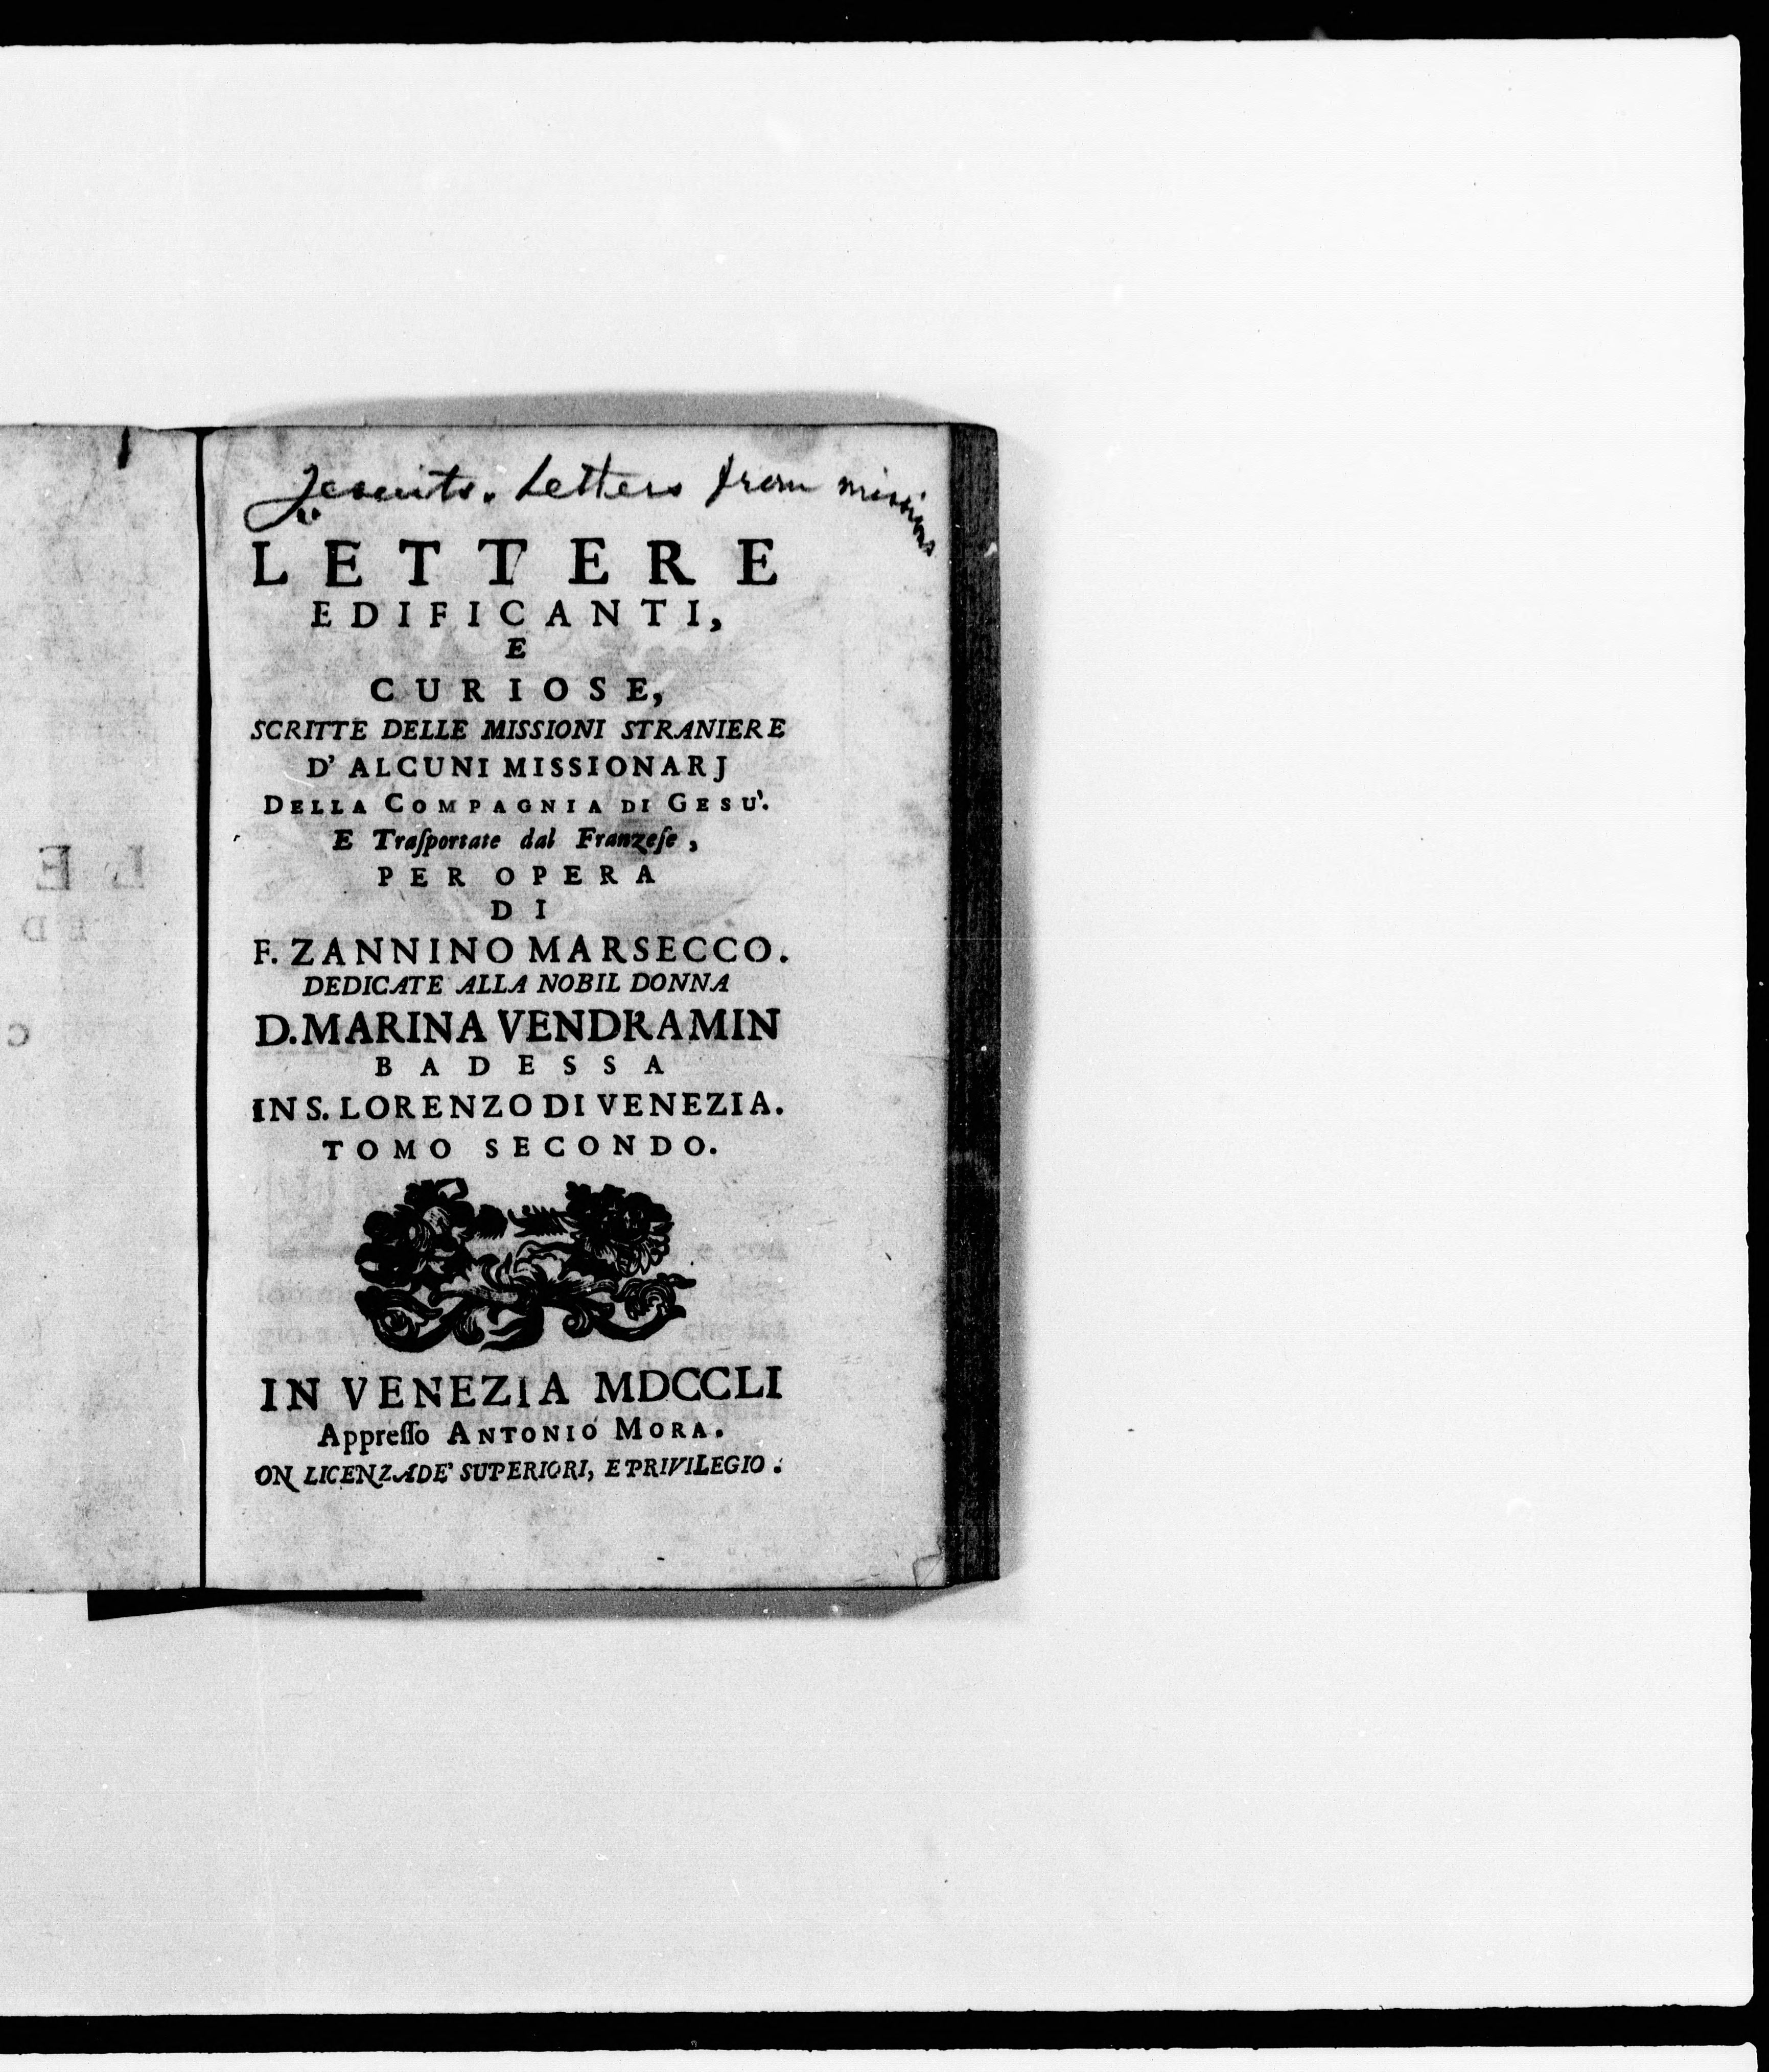 Jesuits. Letters from missions
LETTERE
EDIFICANTI,
E
CURIOSE,
SCRITTE DELLE MISSIONI STRANIERE
D' ALCUNI MISSIONARJ
DELLA COMPAGNIA DI GESU'.
E Traſportate dal Franzeſe,
PER OPERA
DI
F. ZANNINO MARSECCO.
DEDICATE ALLA NOBIL DONNA
D. MARINA VENDRAMIN
BADESSA
IN S. LORENZO DI VENEZIA.
TOMO SECONDO.
IN VENEZIA MDCCLI
Appreſſo ANTONIO MORA.
ON LICENZA DE' SUPERIORI, E PRIVILEGIO.